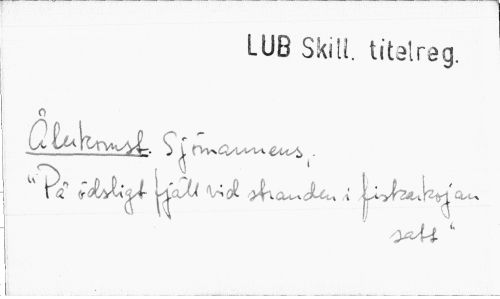 LUB Skill. titelreg.
Återkomst. Sjömannens,
"På ödsligt fjäll vid stranden i fiskarkojan
satt"